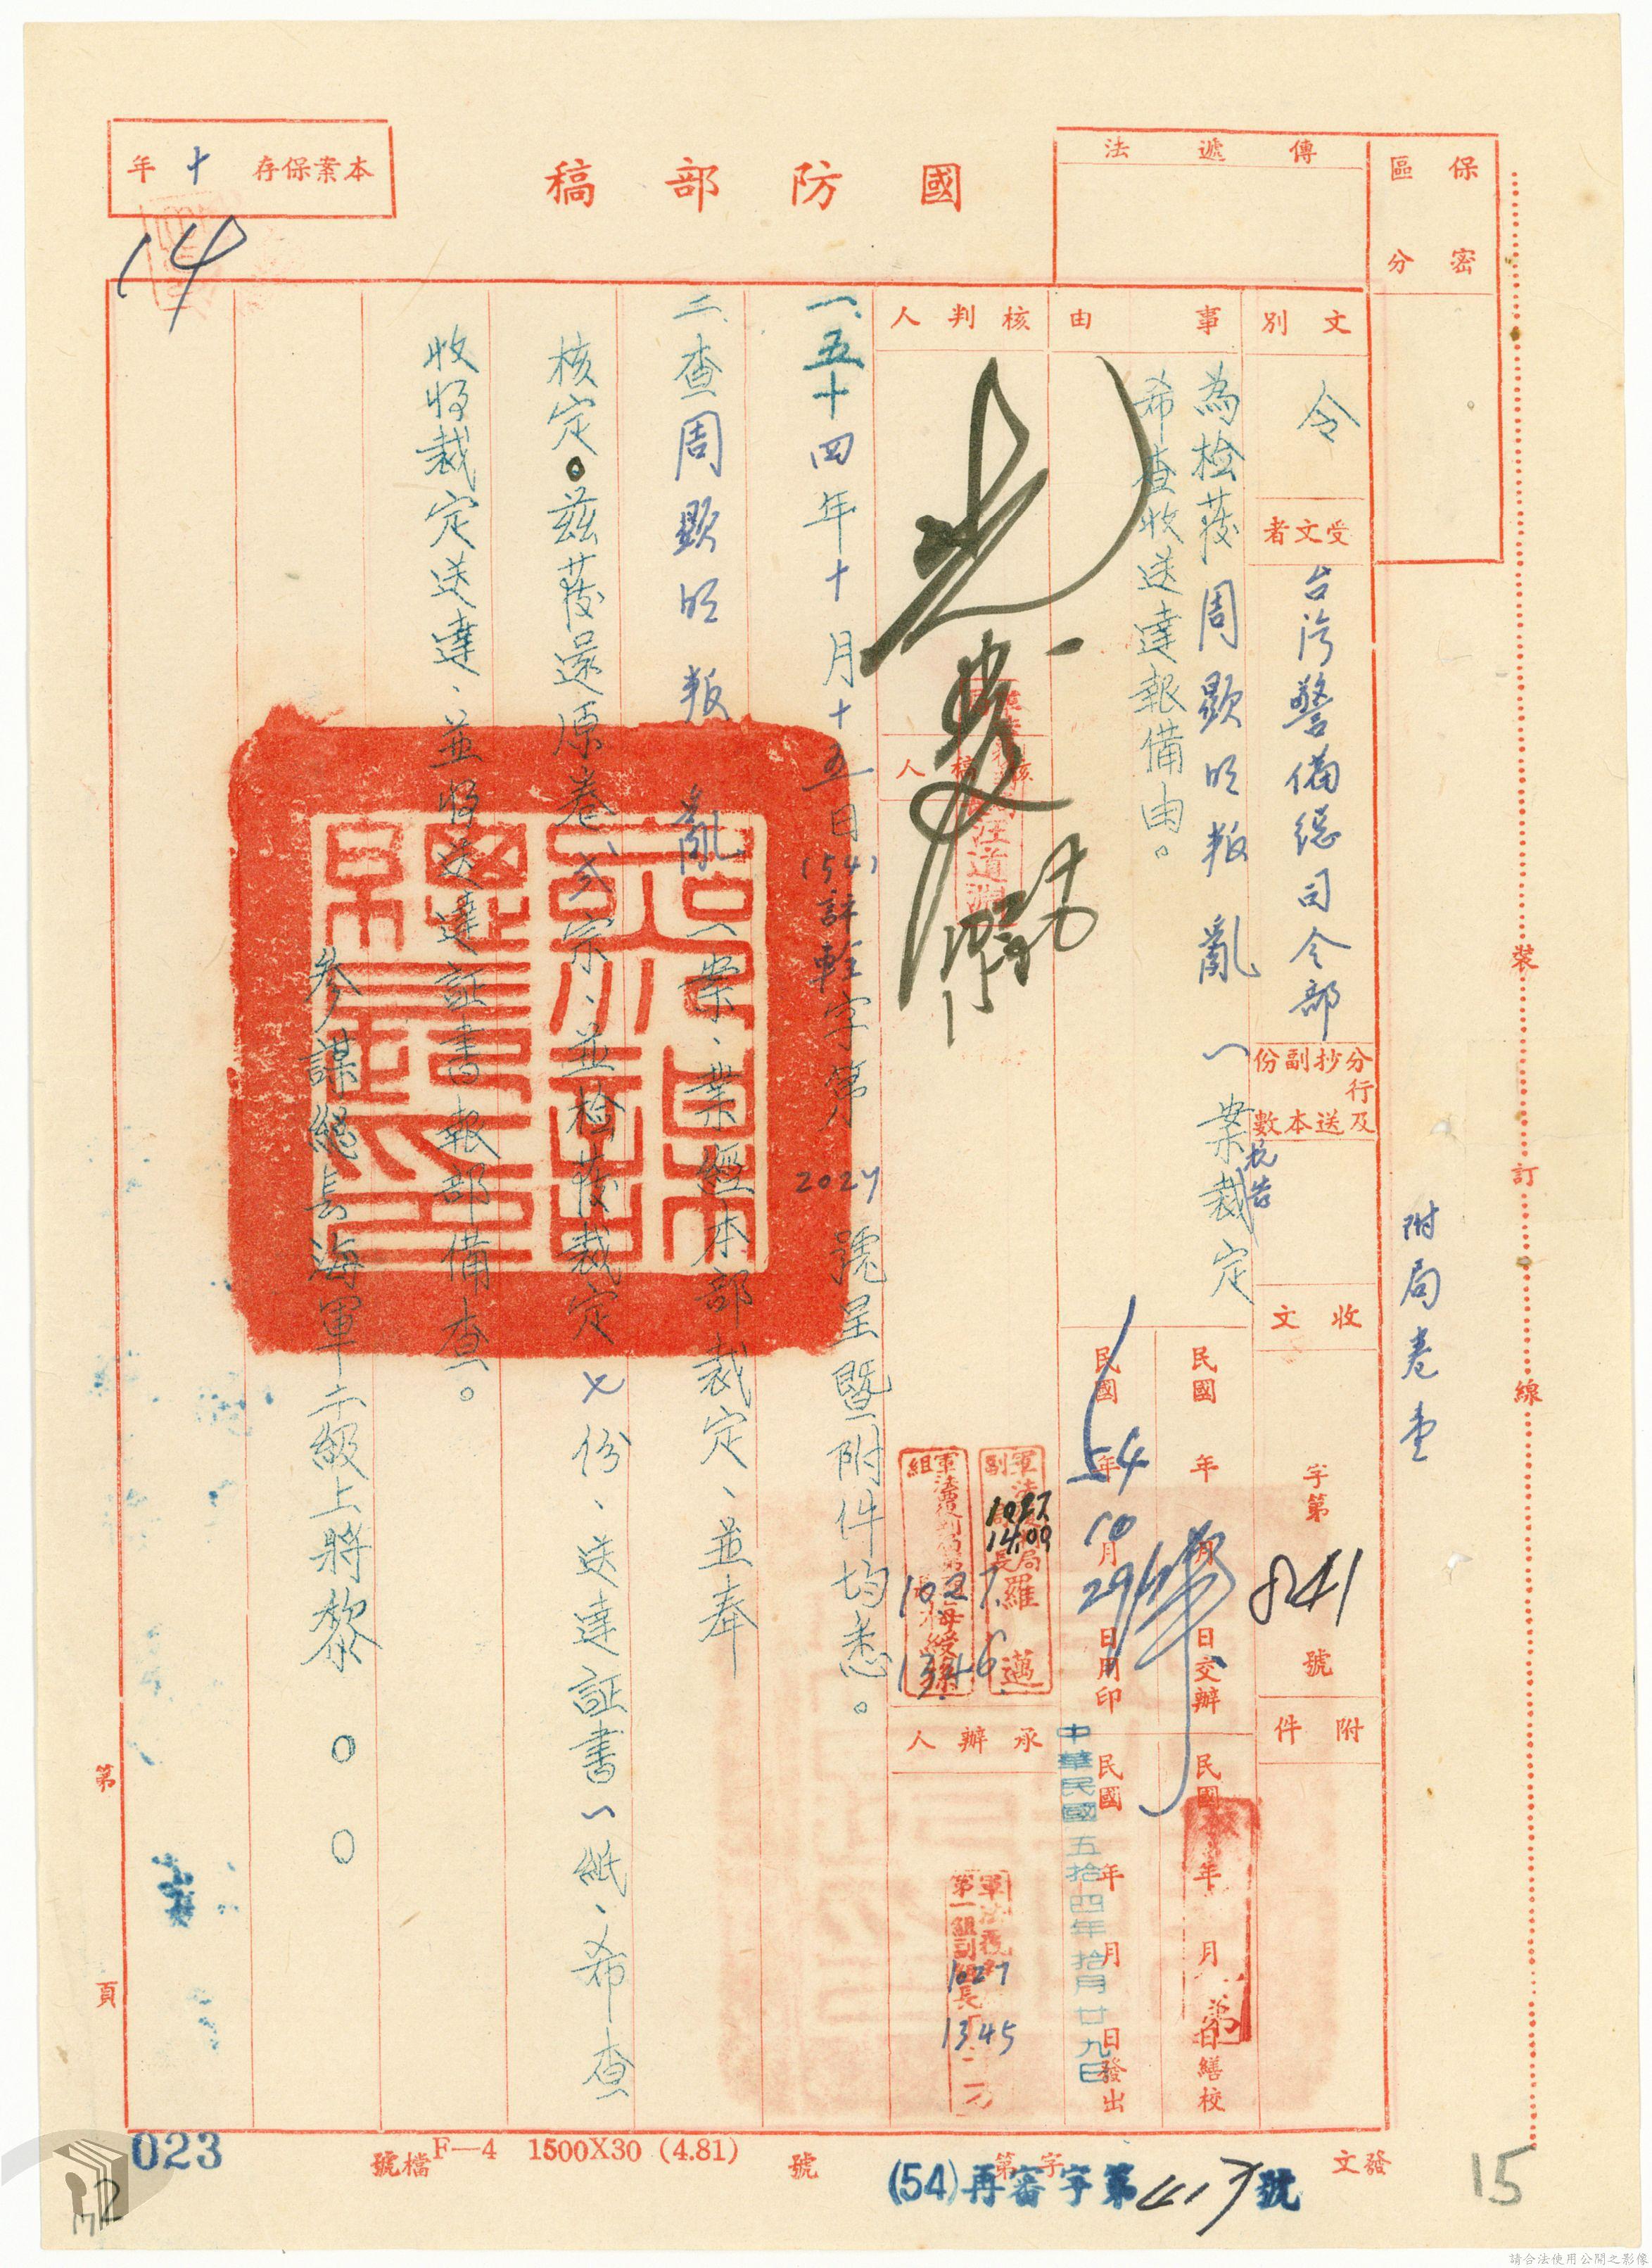 保密
區分
傳遞法
國防部稿
本案保存十年
14
文別
令
受文者
台灣警備總司令部
分行及抄送副本份數
收文
字第
841
號
附件
附局卷壹
事由
為檢發周顯明叛亂一案抗告裁定
希查收送達報備由。
民國 年 月 日交辦
民國 54年10月29日用印
民國 年 月 日繕校
民國 年 月 日發出
中華民國五拾四年拾月廿九日
核判人
核稿人
汪道淵
軍法覆判局副局長羅邁
1027
1400
1027
1346
承辦人
1027
1345
一、五十四年十月十五日(54)訴輕字第2027號呈暨附件均悉。
二、查周顯明叛亂一案、業經本部裁定、並奉
核定。茲發還原卷弍宗、並檢發裁定七份、送達証書一紙、希查
收將裁定送達、並將送達証書報部備查。
參謀總長海軍二級上將黎○○
裝訂線
第 頁
023
檔號
F—4 1500X30 (4.81)
號
發文
字第
(54)再審字第417號
15
12
請合法使用公開之影像